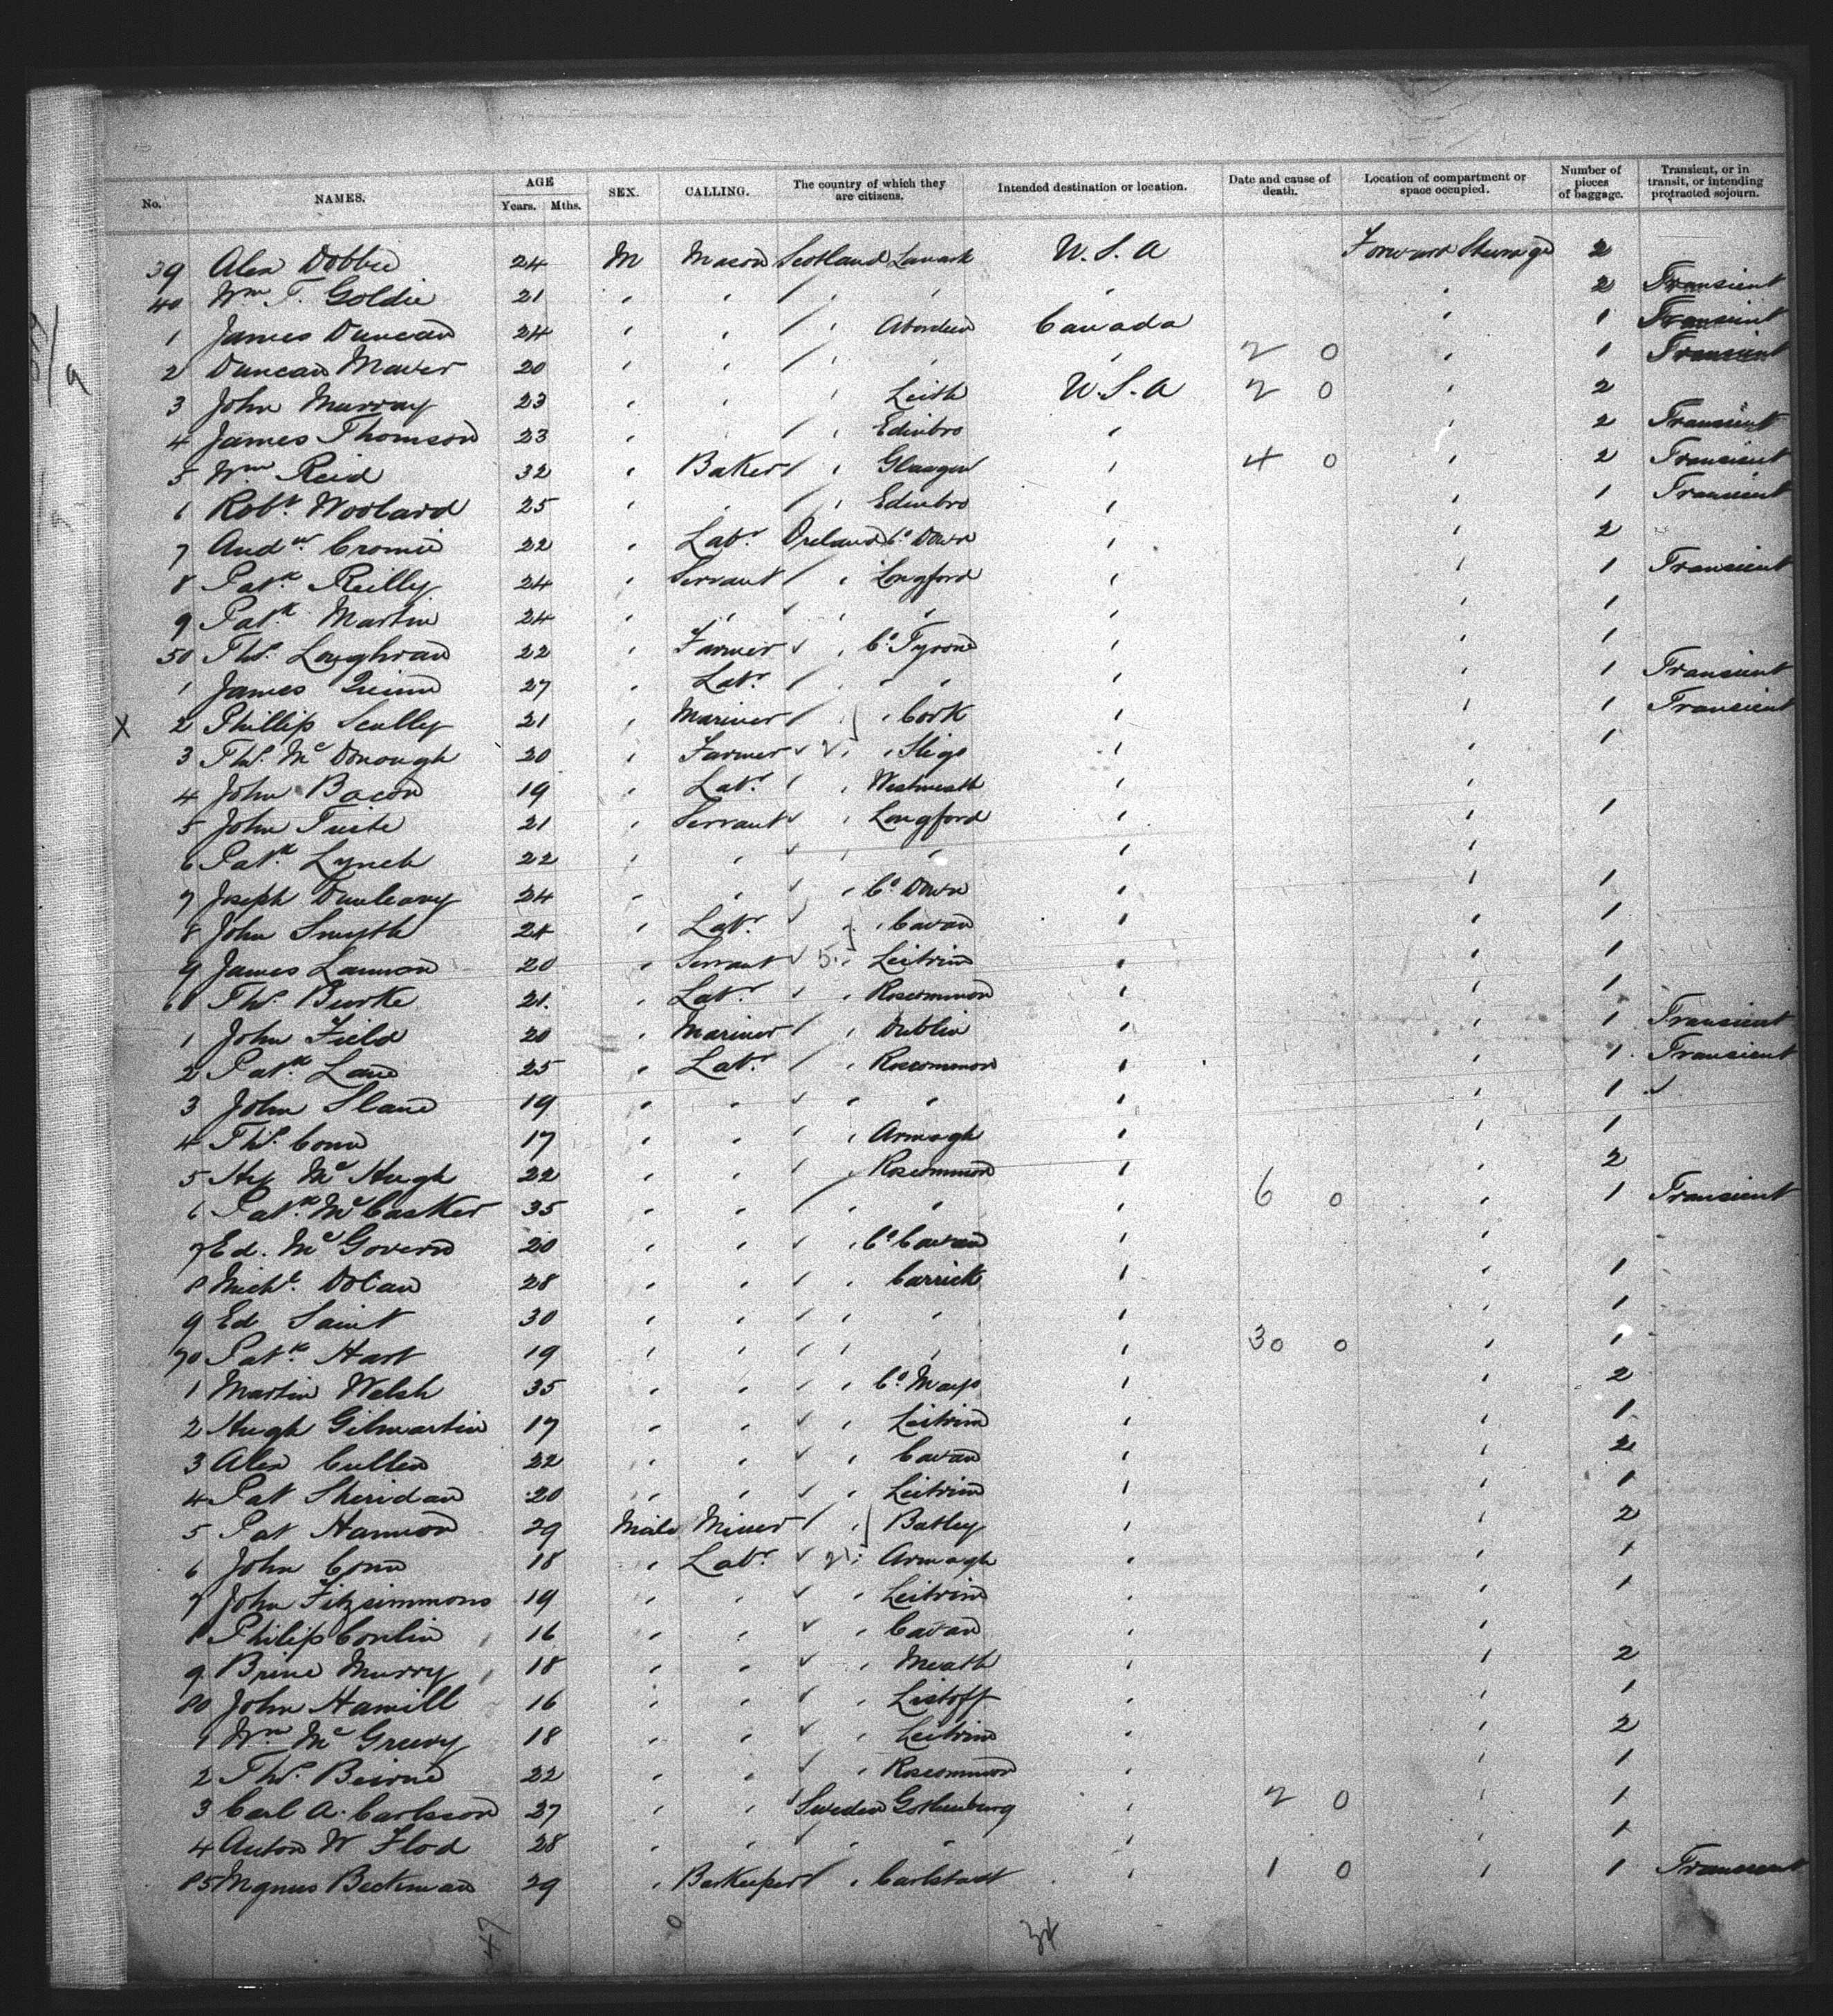 No. NAMES. AGE Years. Mths. SEX. CALLING. The country of which they are citizens. Intended destination or location. Date and cause of death. Location of compartment or space occupied. Number of pieces of baggage. Transient, or in transit, or intending protracted sojourn.
39 Alex Dobbie 24 M Mason Scotland Lanark U.S.A Forward Steerage 2
40 Wm T. Goldie 21 " " " " " " 2 Transient
1 James Duncan 24 " " " Aberdeen Canada " 1 Transient
2 Duncan Mawer 20 " " " " " 2 0 " 1 Transient
3 John Murray 23 " " " Leith U.S.A 2 0 " 2
4 James Thomson 23 " " " Edinbro " " 2 Transient
5 Wm Reid 32 " Baker " Glasgow " 4 0 " 2 Transient
6 Robt Woolard 25 " " " Edinbro " " 1 Transient
7 Andw Cromie 22 " Labr Ireland Co Down " " 2
8 Patk Reilly 24 " Servant " Longford " " 1 Transient
9 Patk Martin 24 " " " " " " 1
50 Thos Loughran 22 " Farmer " Co Tyrone " " 1
1 James Quinn 27 " Labr " " " " 1 Transient
X 2 Phillip Scully 21 " Mariner " Cork " " 1 Transient
3 Thos McDonough 20 " Farmer 2 " Sligo " " 1
4 John Bacon 19 " Labr " Westmeath " "
5 John Tuite 21 " Servant " Longford " " 1
6 Patk Lynch 22 " " " " " "
7 Joseph Dunleavy 24 " " " Co Down " " 1
8 John Smyth 21 " Labr " Cavan " " 1
9 James Lannon 20 " Servant 5 " Leitrim " " 1
60 Thos Burke 21 " Labr " Roscommon " " 1
1 John Field 20 " Mariner " Dublin " " 1 Transient
2 Patk Lane 25 " Labr " Roscommon " " 1 Transient
3 John Slane 19 " " " " " " 1
4 Thos Conn 17 " " " Armagh " " 1
5 Hy McHugh 22 " " " Roscommon " " 2
6 Patk McCasker 35 " " " " " 6 0 " 1 Transient
7 Ed. McGovern 20 " " " Co Cavan " "
8 Michl Dolan 28 " " " Carrick " " 1
9 Ed Saint 30 " " " " " " 1
70 Patk Hart 19 " " " " " 30 0 " 1
1 Martin Welsh 35 " " " Co Mayo " " 2
2 Hugh Gilmartin 17 " " " Leitrim " " 1
3 Alex Cullen 22 " " " Cavan " " 2
4 Pat Sheridan 20 " " " Leitrim " " 1
5 Pat Hannon 29 Male Miner " Batley " " 2
6 John Conn 18 " Labr 21 " Armagh " " 1
7 John Fitzsimmons 19 " " " Leitrim " " 1
8 Philip Conlin 16 " " " Cavan " "
9 Brine Murry 18 " " " Meath " " 2
80 John Hamill 16 " " " Listoff " " 1
1 Wm McGreevy 18 " " " Leitrim " " 2
2 Thos Beirne 22 " " " Roscommon " " 1
3 Carl A. Carlsson 27 " " Sweden Gothenburg " 2 0 " 1
4 Anton W Flod 28 " " " " " 1
85 Mgnus Beckman 29 " Barkeeper " Carlstadt " 1 0 " 1 Transient
47 0 34